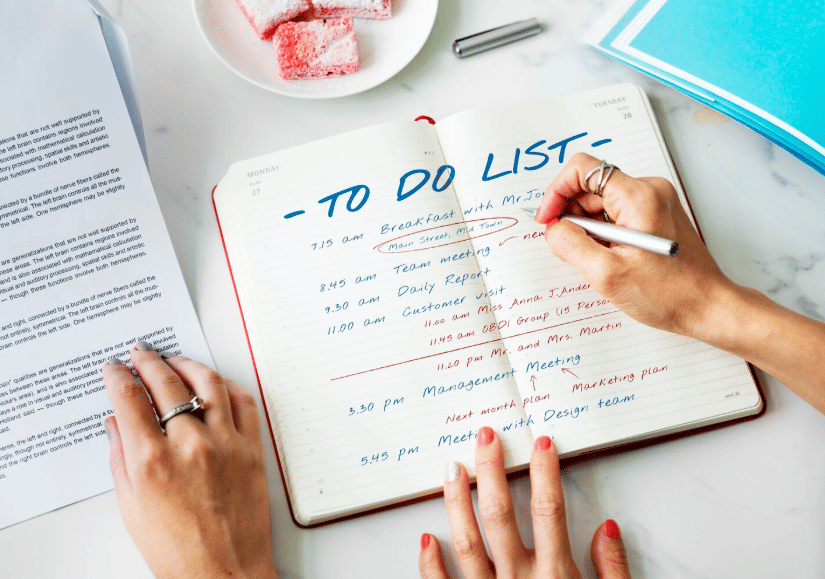 ations that are not well supported by
the left brain contains regions involved
associated with mathematical calculation
auditory processing, spatial skills and artistic
these functions involve both hemispheres.
connected by a bundle of nerve fibers called the
symmetrical. The left brain controls all the mus-
the left side. One hemisphere may be slightly
are generalizations that are not well supported by
these areas. The left brain contains regions involved
and is also associated with mathematical calculation
visual and auditory processing, spatial skills and artistic
— though these functions involve both hemispheres.
and right, connected by a bundle of nerve fibers called the
not entirely, symmetrical. The left brain controls all the mus-
brain controls the left side. One hemisphere may be slightly
brain" qualities are generalizations that are not well supported by
between these areas. The left brain contains regions involved
area), and is also associated with
plays a role in visual and auditory
Holland said — though these
the left and right, connected by a
though not entirely, symmetrical.
and the right brain controls the left
MONDAY
JUNE
27
TUESDAY
JUNE
28
- TO DO LIST -
7.15 am Breakfast with Mr.
Main Street, Mid Town
8.45 am Team meeting
new
9.30 am Daily Report
11.00 am Customer visit
11.00 am Miss Anna J.
11.45 am OBDI Group (15
11.20 pm Mr. and Mrs. Martin
3.30 pm Management Meeting
Next month plan Marketing plan
5.45 pm with Design team